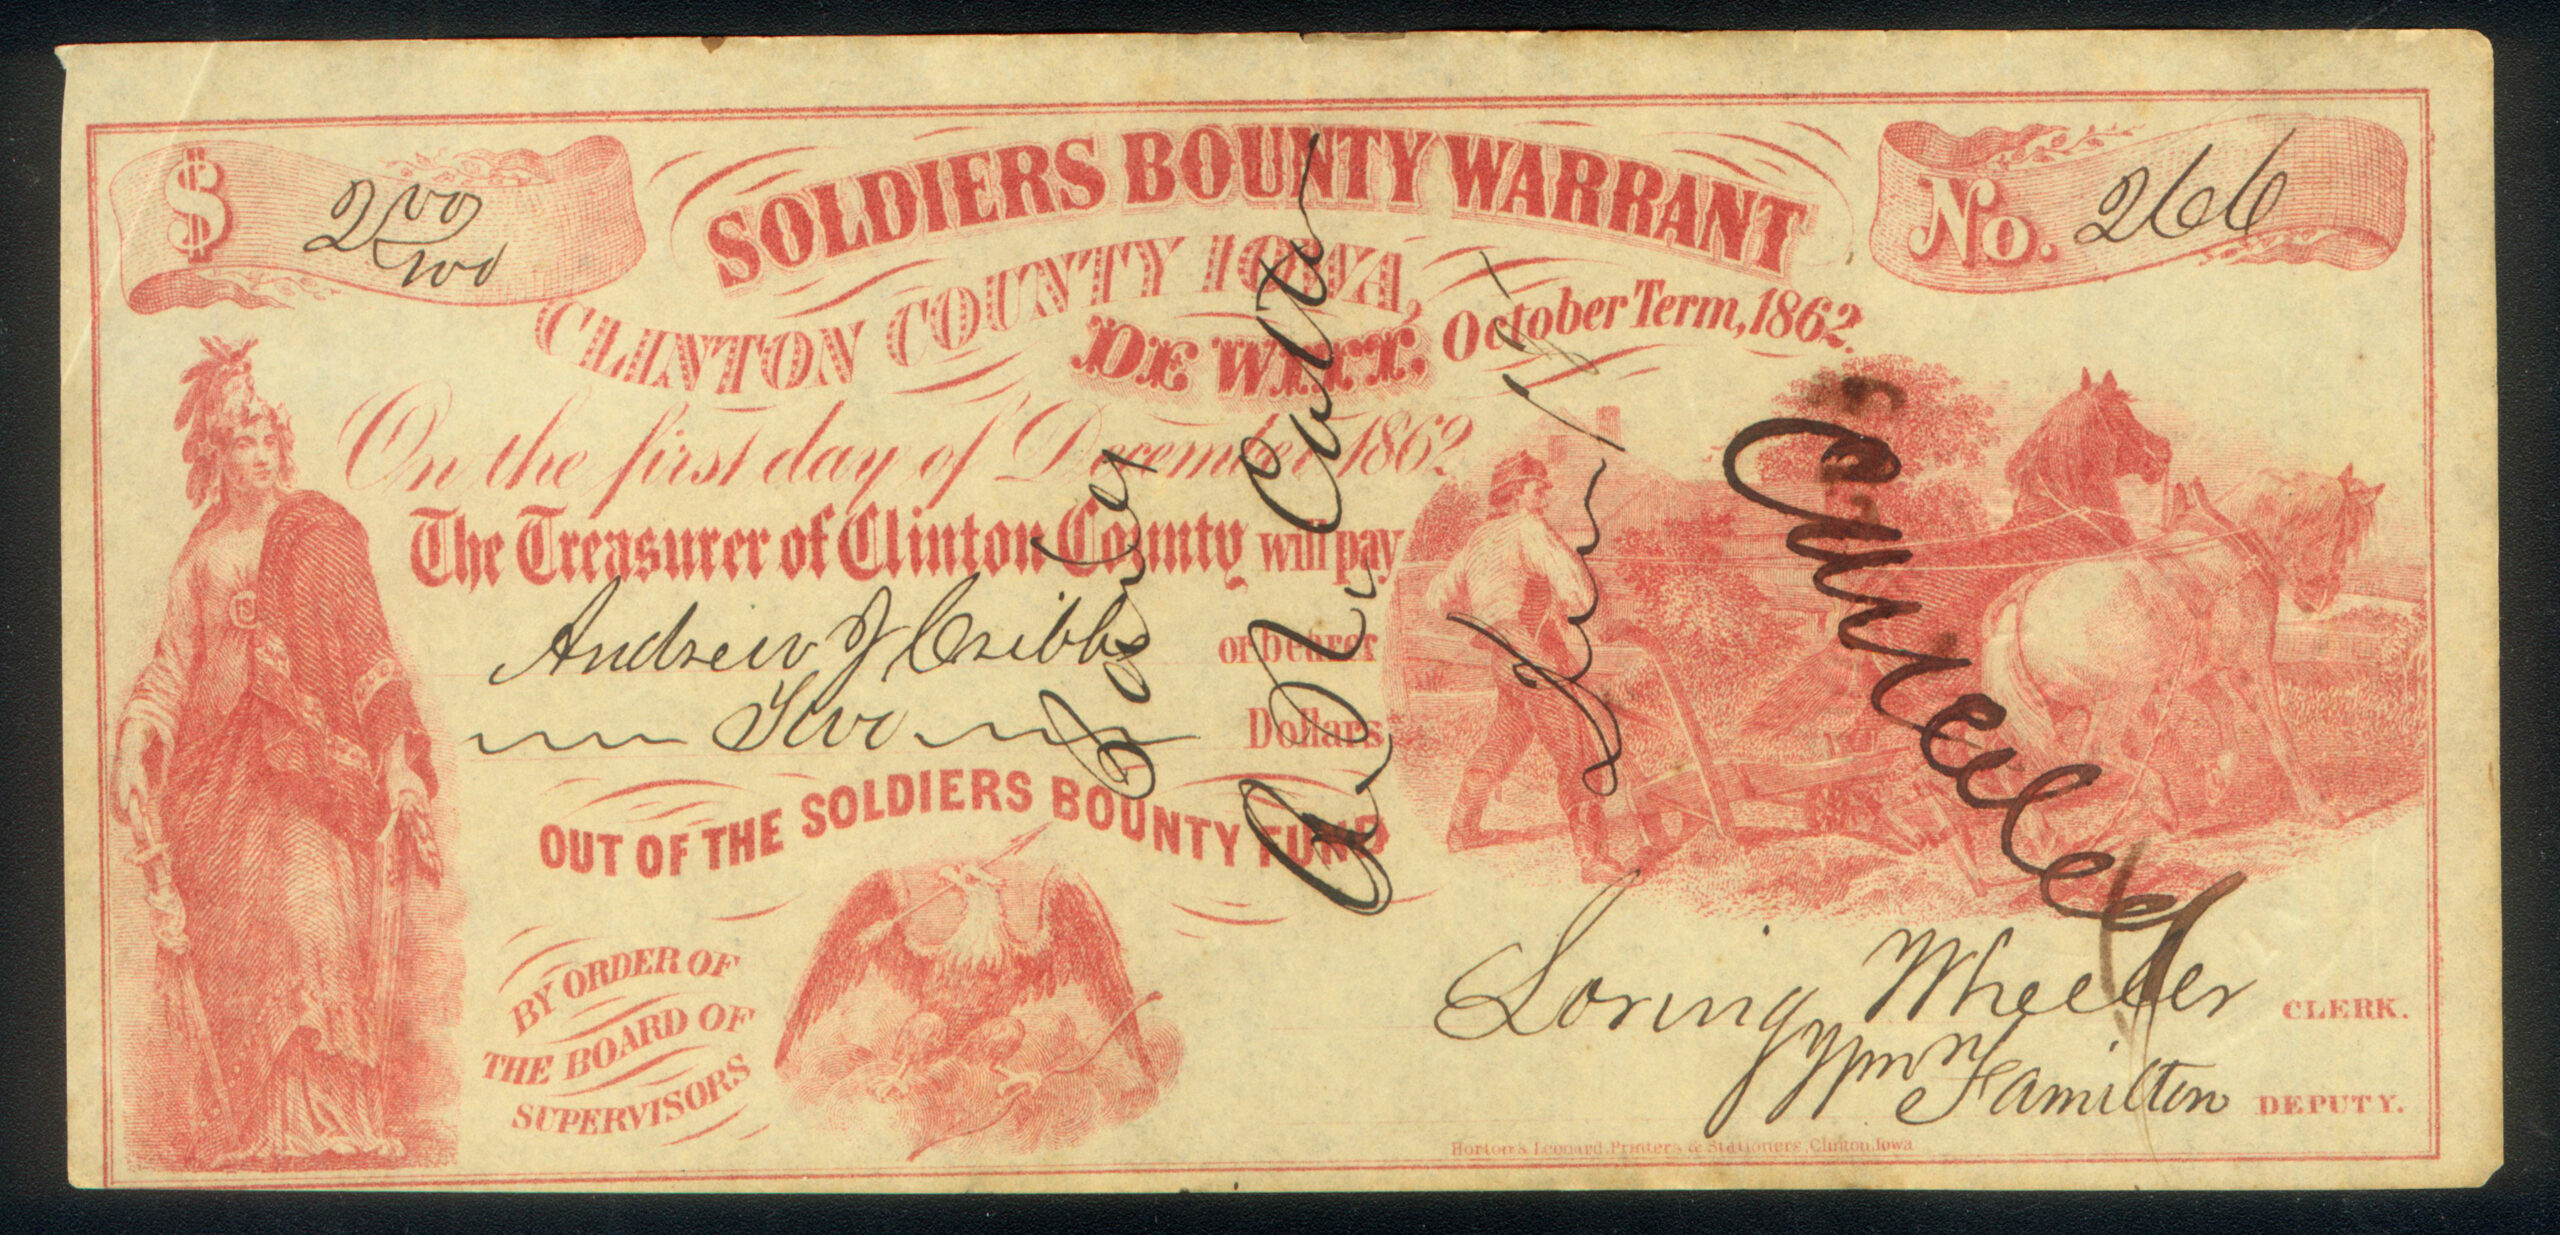 $ 2 00/100
SOLDIERS BOUNTY WARRANT
No. 266
CLINTON COUNTY IOWA,
DE WITT, October Term, 1862.
On the first day of December 1862
The Treasurer of Clinton County will pay
Andrew J Cribbs or bearer
Two Dollars
OUT OF THE SOLDIERS BOUNTY FUND
BY ORDER OF
THE BOARD OF
SUPERVISORS
Loring Wheeler CLERK.
Wm Hamilton DEPUTY.
Horton & Leonard, Printers & Stationers, Clinton, Iowa
Cancelled